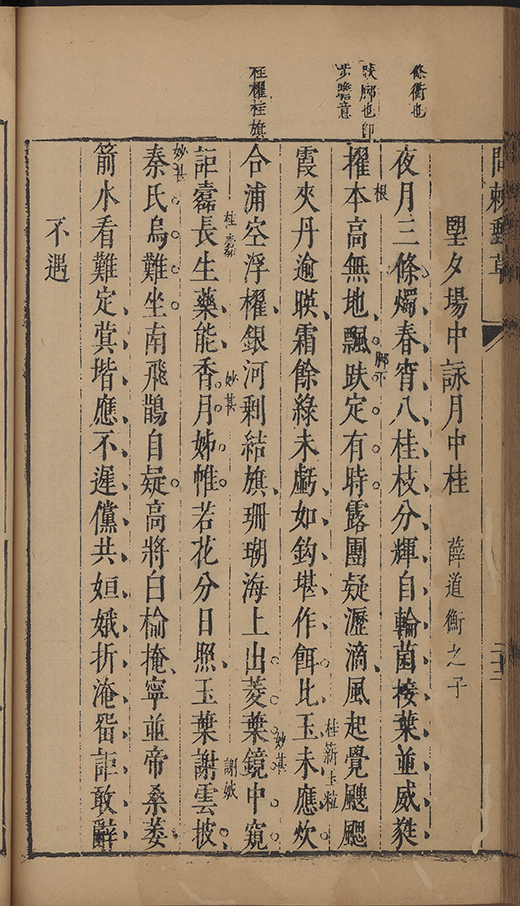 條衝也
趺脚也卽
步蟾意
桂櫂桂旗
問棘郵草
望夕場中詠月中桂 薛道衡之子
夜月三條燭春宵八桂枝分輝自輪菌接葉並威蕤
根
脚下
擢本高無地飄趺定有時露團疑瀝滴風起覺颼颸
霞夾丹逾暎霜餘綠未虧如鈎堪作餌比玉未應炊
桂薪玉粒
合浦空浮櫂銀河剩結旗珊瑚海上出菱葉鏡中窺
妙甚
桂蠹
妙甚
詎蠹長生藥能香月姊帷若花分日照玉葉謝雲披
妙甚
秦氏烏難坐南飛鵲自疑高將白榆掩寧並帝桑萎
箭水看難定蓂堦應不遲儻共姮娥折淹留詎敢辭
不遇